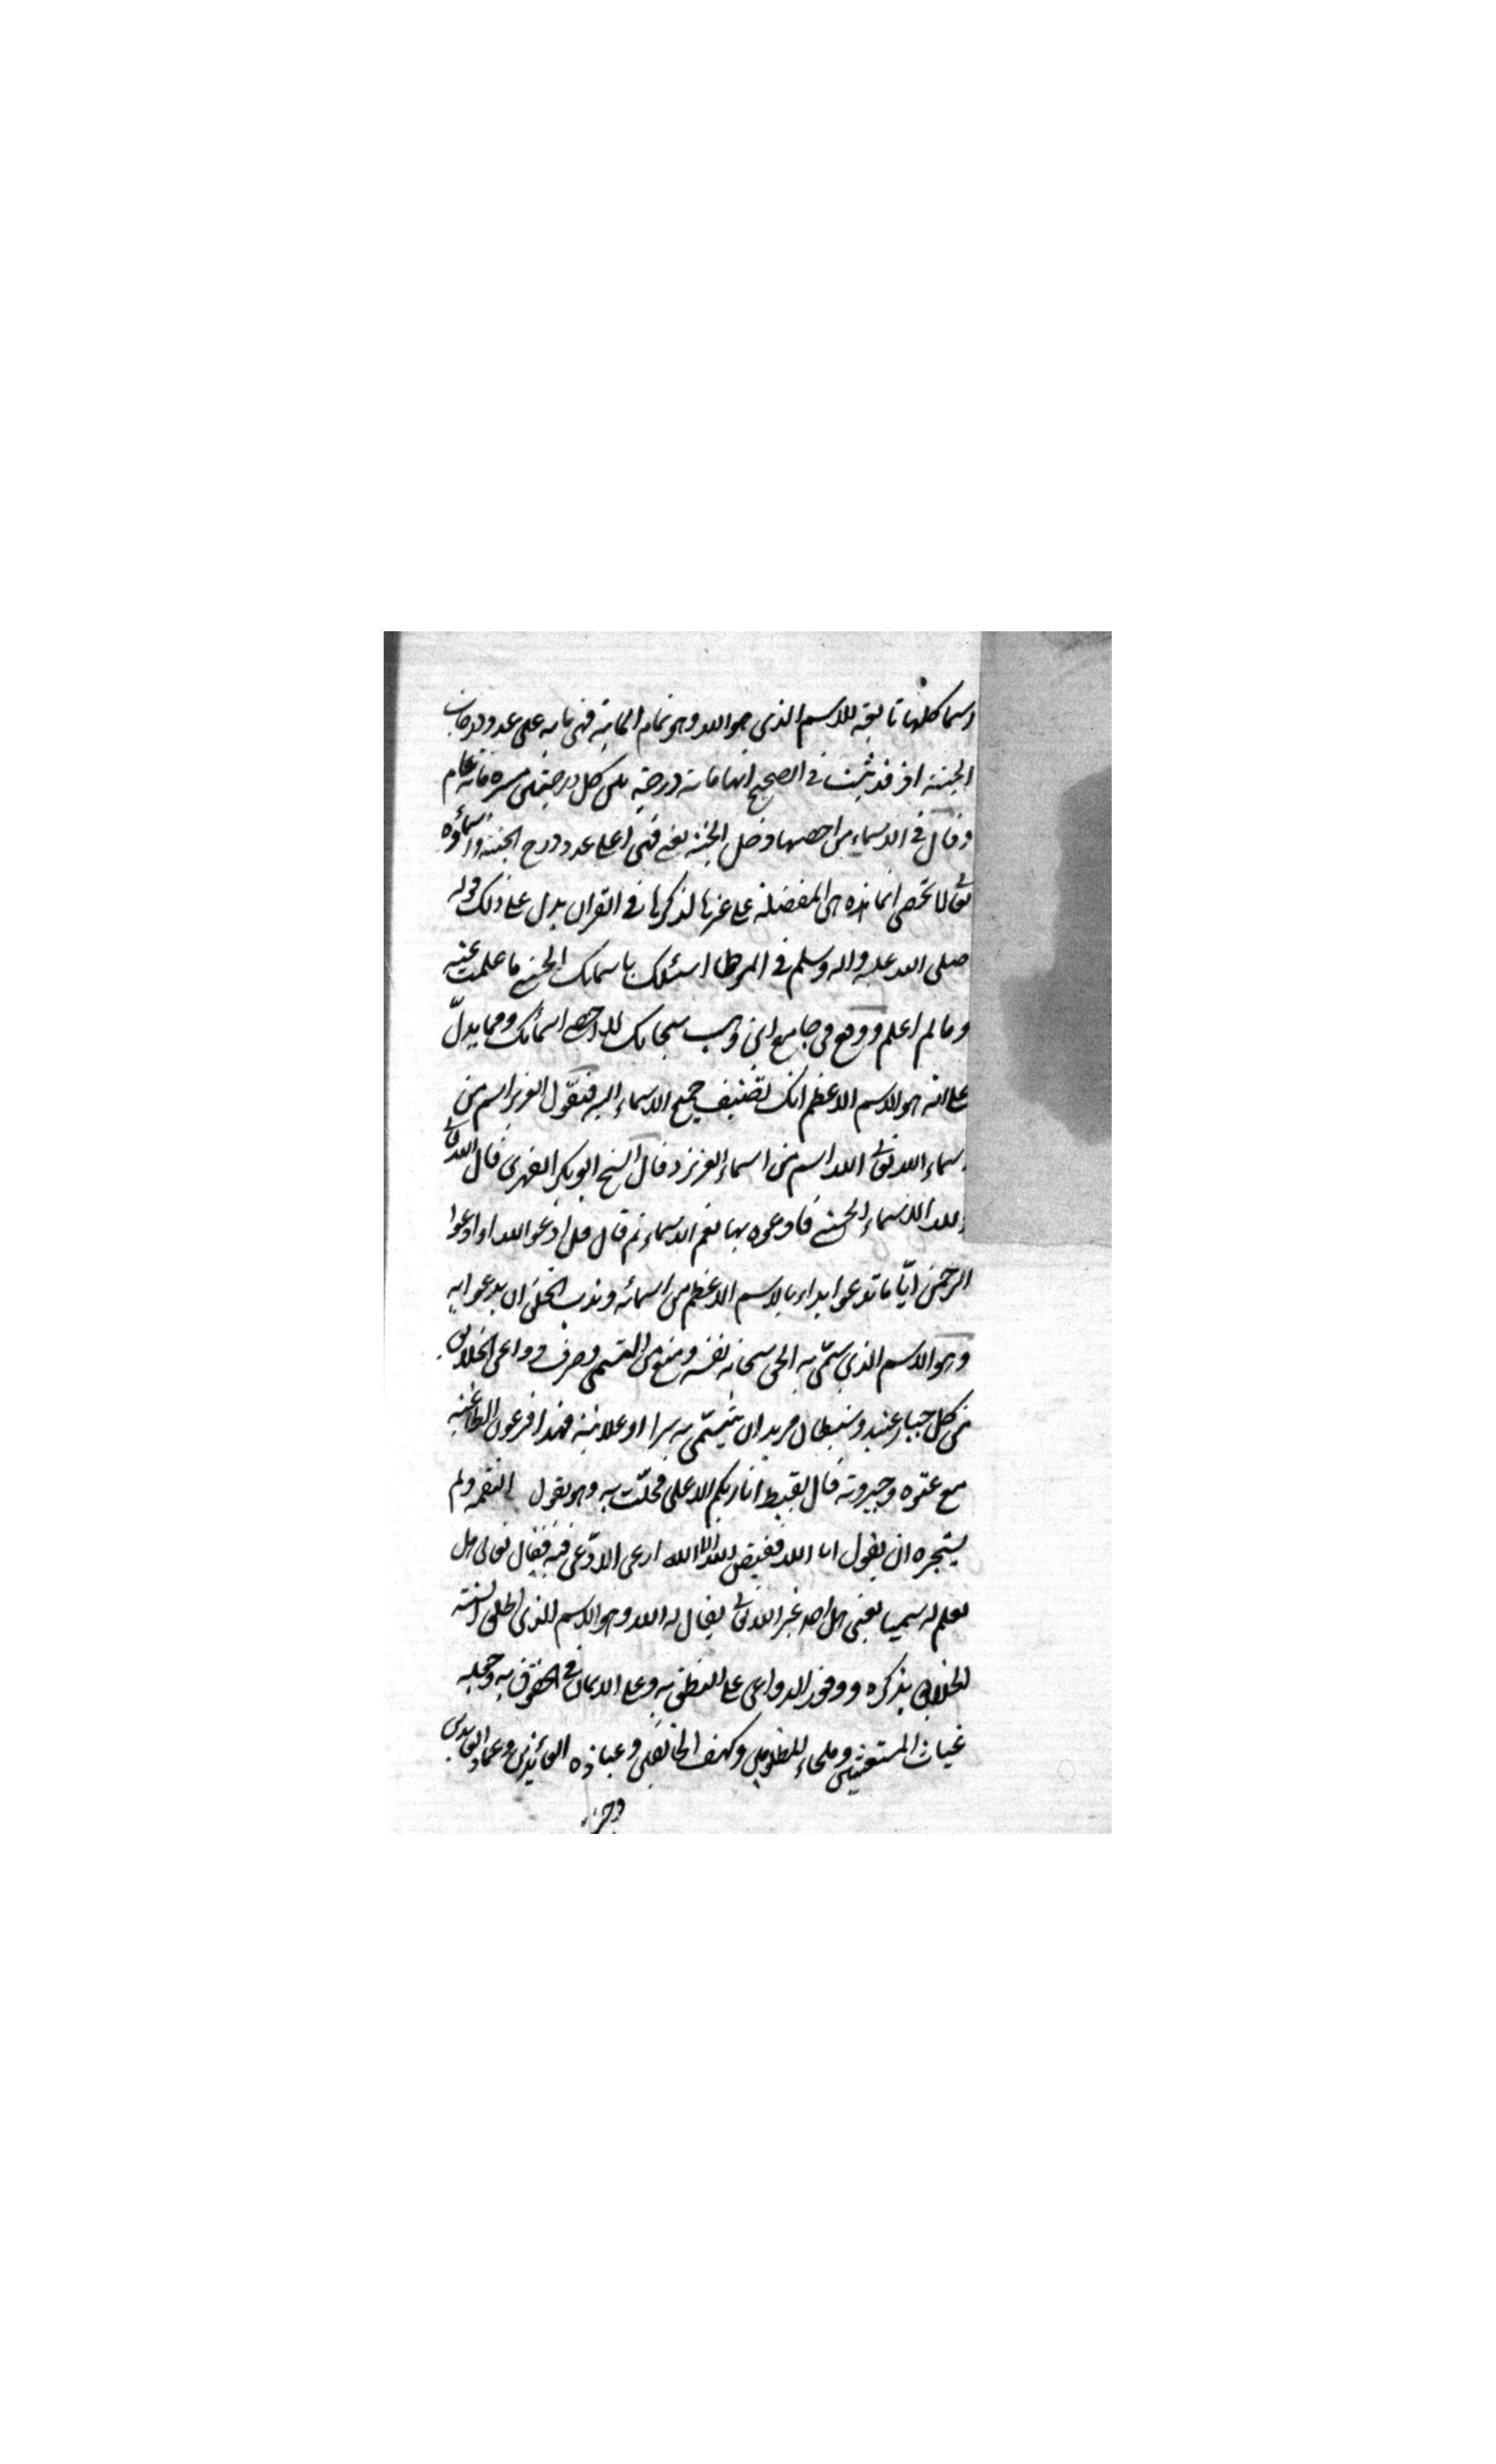 اسما كلها تابعة للاسم الذى هو الله وهو تمام المائة فهى مائة على عدد درجات
الجنة اذ قد ثبت فى الصحيح انها مائة درجة بين كل درجتين مسيرة مائة عام
وقال فى الاسماء من احصيها دخل الجنة يعنى فهى اعلى عدد درج الجنة واسمائوه
تعالى لا تحصى انما هذه هى المفضلة على غيرها لذكرها فى القران يدل على ذلك قوله
صلى الله عليه واله وسلم فى الموطا اسئلك باسمائك الحسنى ما علمت عنه
وما لم اعلم ووقع فى جامع ابن وهب سبحانك لا احصى اسمائك ومما يدلّ
على انه هو الاسم الاعظم انك تضيف جميع الاسماء اليه فتقول العزيز اسم من
اسماء الله تعالى الله اسم من اسماء العزيز وقال الشيخ ابو بكر الفهرى قال الله تعالى
ولله الاسماء الحسنى فادعوه بها نعم الاسماء ثم قال قل ادعوا الله او ادعوا
الرحمن ايّا ما تدعوا بداء بالاسم الاعظم من اسمائه وندب الخلق ان يدعوا به
وهو الاسم الذى سمّى به الحى سبحانه نفسه ومنع من التسمى وصرف دواعى الخلايق
من كل جبار عنيد وشيطان مريد ان يتسمّى به سرا او علانية فهذا فرعون الطاغية
مع عتوه وجبروته قال لقبط انا ربكم الاعلى فحلّت به وهو يقول النقمة ولم
يتجره ان يقول انا الله فقيض الله الا الله ادعى الادّعى فيه فقال تعالى هل
تعلم له سميا يعنى هل احد غير الله تعالى يقال له الله وهو الاسم الذى اطلق السنة
الخلايق بذكره ووفور الدواعى على النطق به وعلى الايمان فى الحقوق به وجعله
غياث المستغيثين وملجاء للمظلومين وكهف الخائفين وعياذه العائذين وعماد العابدين